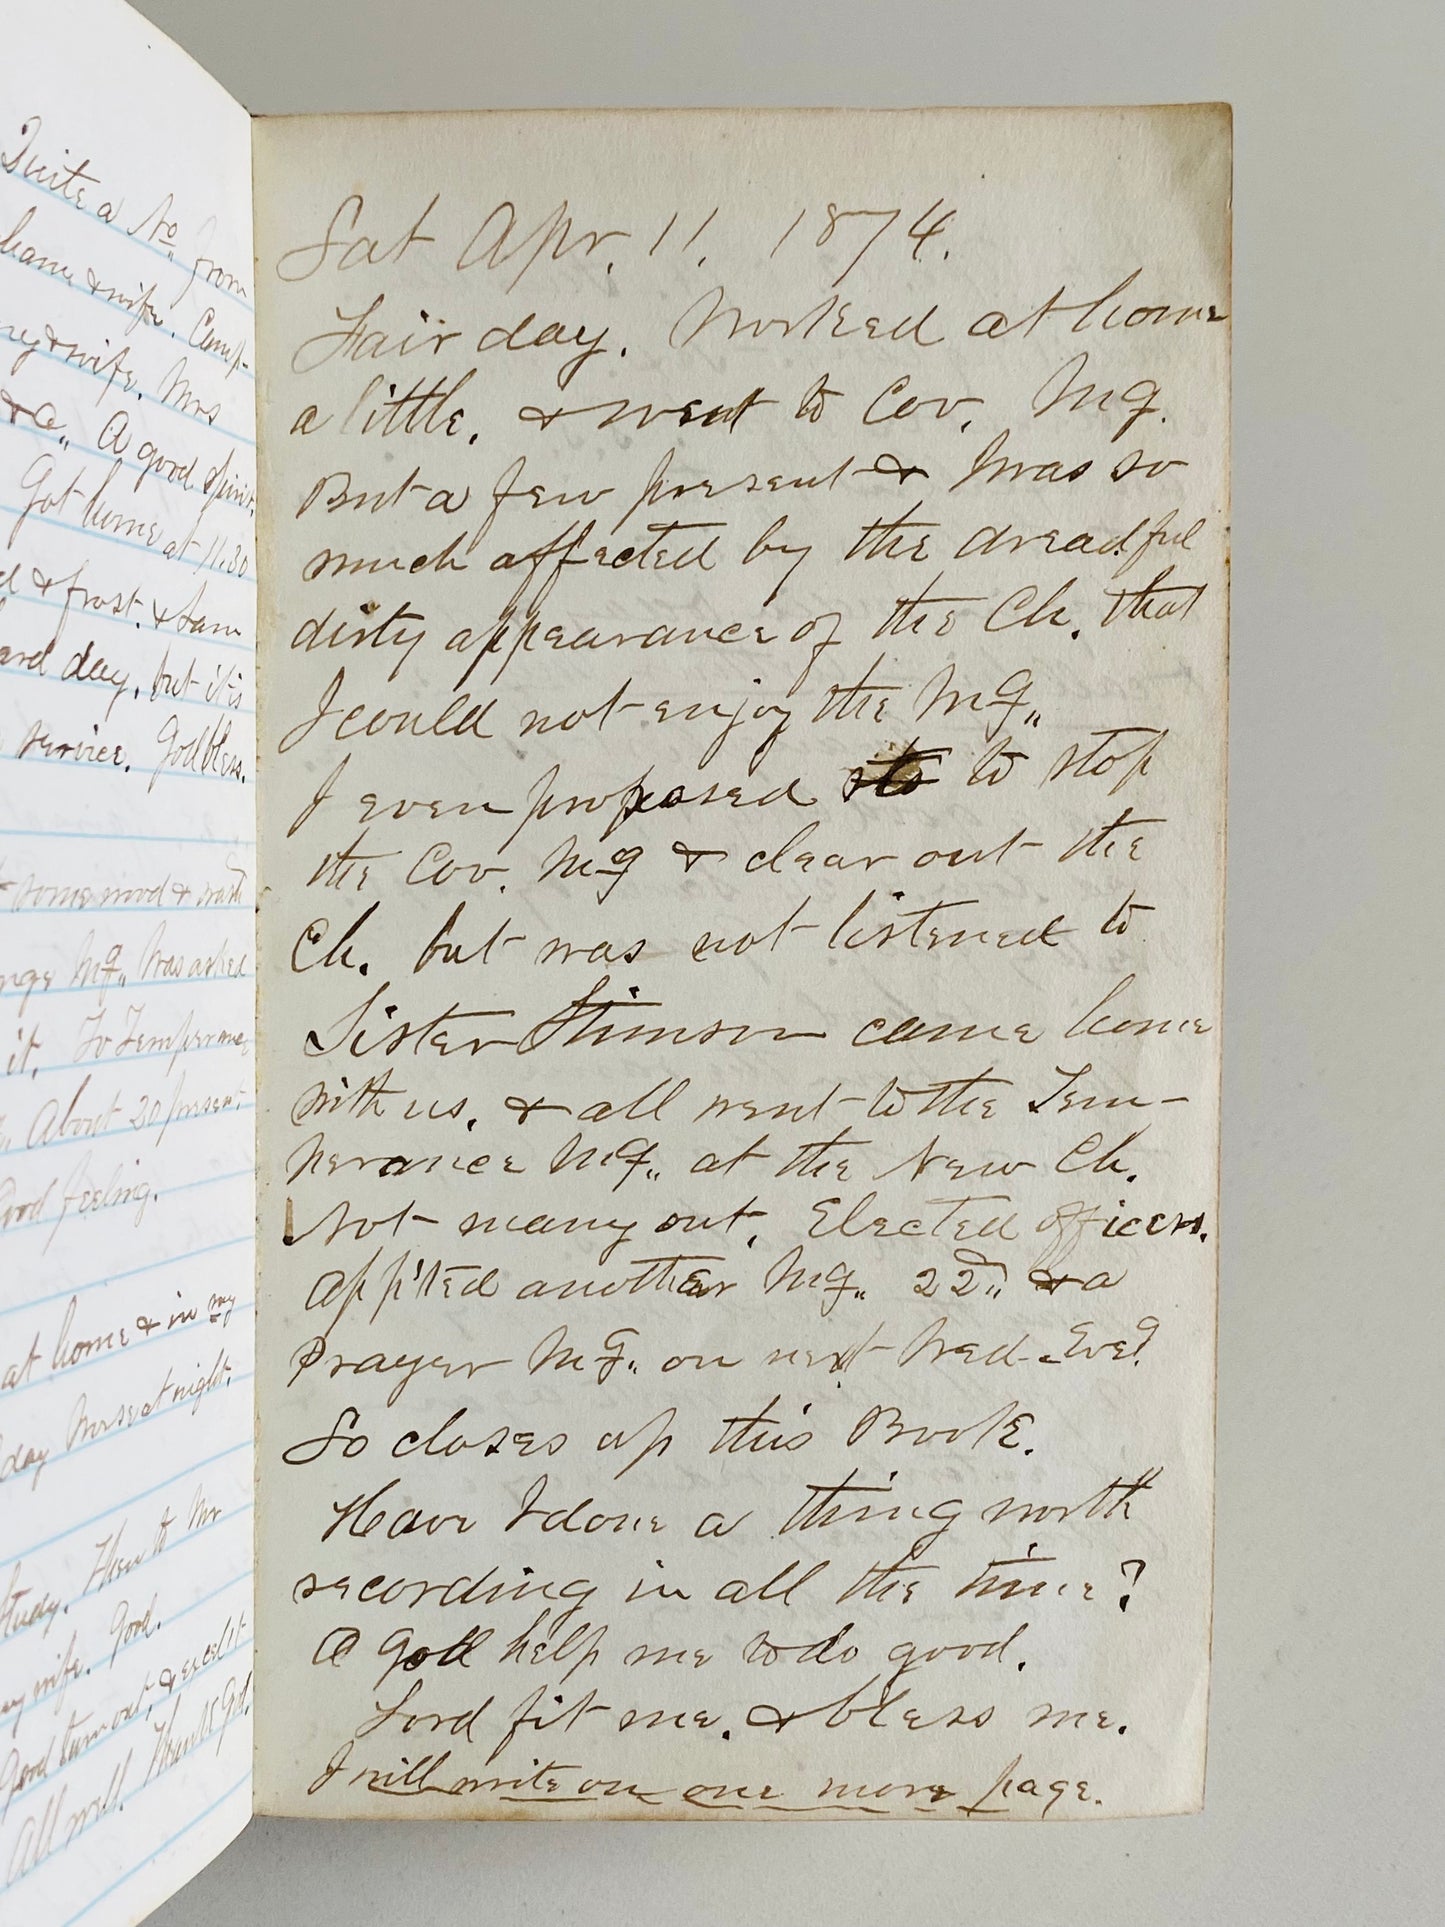 Quite a No. from
& wife. Camp-
& wife. Mrs
&c,, A good spirit.
Got home at 11.30
& frost. & Sam
day, but it is
service. God bless.
some wood &
Mg,, Was asked
it. To Temperance
About 20 present.
Good feeling.
at home & in my
day Worse at night.
Study. Then to Mr
my wife. Good.
Good turn out, &
All well. Thanks God.
Sat Apr. 11. 1874.
Fair day. Worked at home
a little. & went to Cov. Mg.
But a few present & Was so
much affected by the dreadful
dirty appearance of the Ch. that
I could not enjoy the Mg,,
I even proposed sto to stop
the Cov. Mg & clear out the
Ch. but was not listened to
Sister Stimson came home
with us. & all went to the Tem-
perance Mg,, at the New Ch.
Not many out. Elected officers.
App'ted another Mg,, 22d,, & a
Prayer Mg,, on next Wed. Eve'g.
So closes up this Book.
Have I done a thing worth
recording in all the time?
O God help me to do good.
Lord fit me. & bless me.
I will write on one more page.